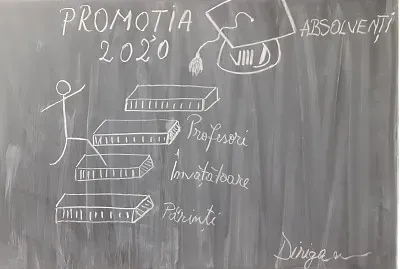 PROMOȚIA
2020
ABSOLVENȚI
Profesori
Învățătoare
Părinți